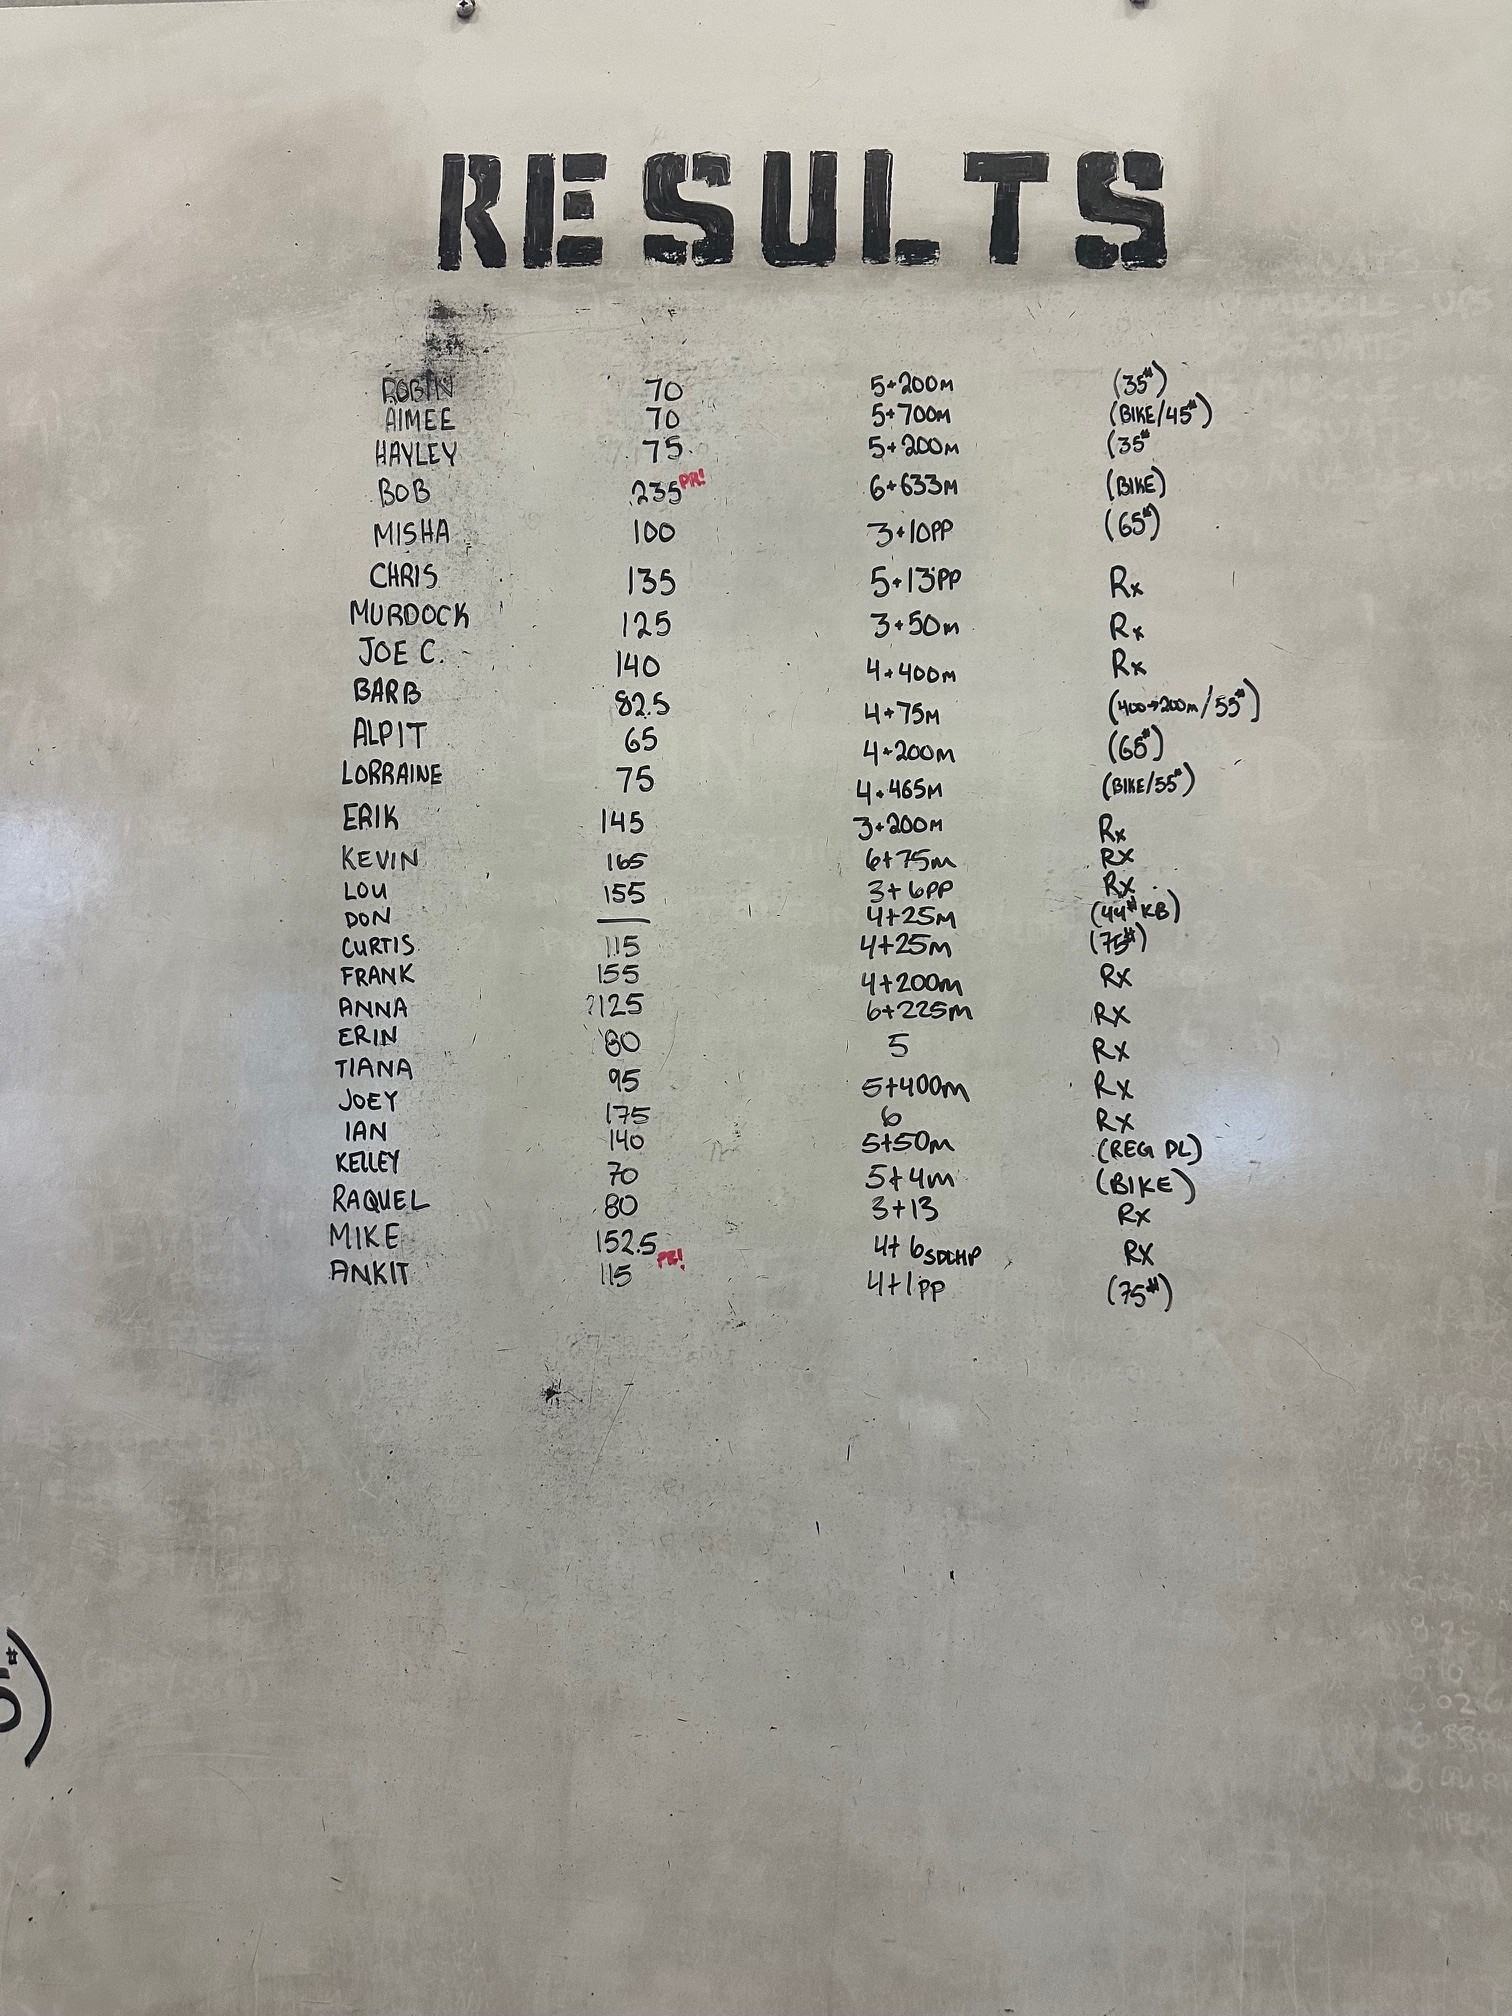 RESULTS
ROBIN 70 5+200M (35#)
AIMEE 70 5+700M (BIKE/45#)
HAYLEY 75 5+200M (35#
BOB 235 PR! 6+633M (BIKE)
MISHA 100 3+10PP (65#)
CHRIS 135 5+13PP Rx
MURDOCK 125 3+50M Rx
JOE C. 140 4+400M Rx
BARB 82.5 4+75M (400→200M/55#)
ALPIT 65 4+200M (65#)
LORRAINE 75 4+465M (BIKE/55#)
ERIK 145 3+200M Rx
KEVIN 165 6+75M RX
LOU 155 3+6PP Rx
DON — 4+25M (44# KB)
CURTIS 115 4+25M (75#)
FRANK 155 4+200M RX
ANNA 125 6+225M RX
ERIN 80 5 RX
TIANA 95 5+400M RX
JOEY 175 6 RX
IAN 140 5+50M (REG DL)
KELLEY 70 5+4M (BIKE)
RAQUEL 80 3+13 RX
MIKE 152.5 4+6SDCHP RX
ANKIT 115 PR! 4+1PP (75#)